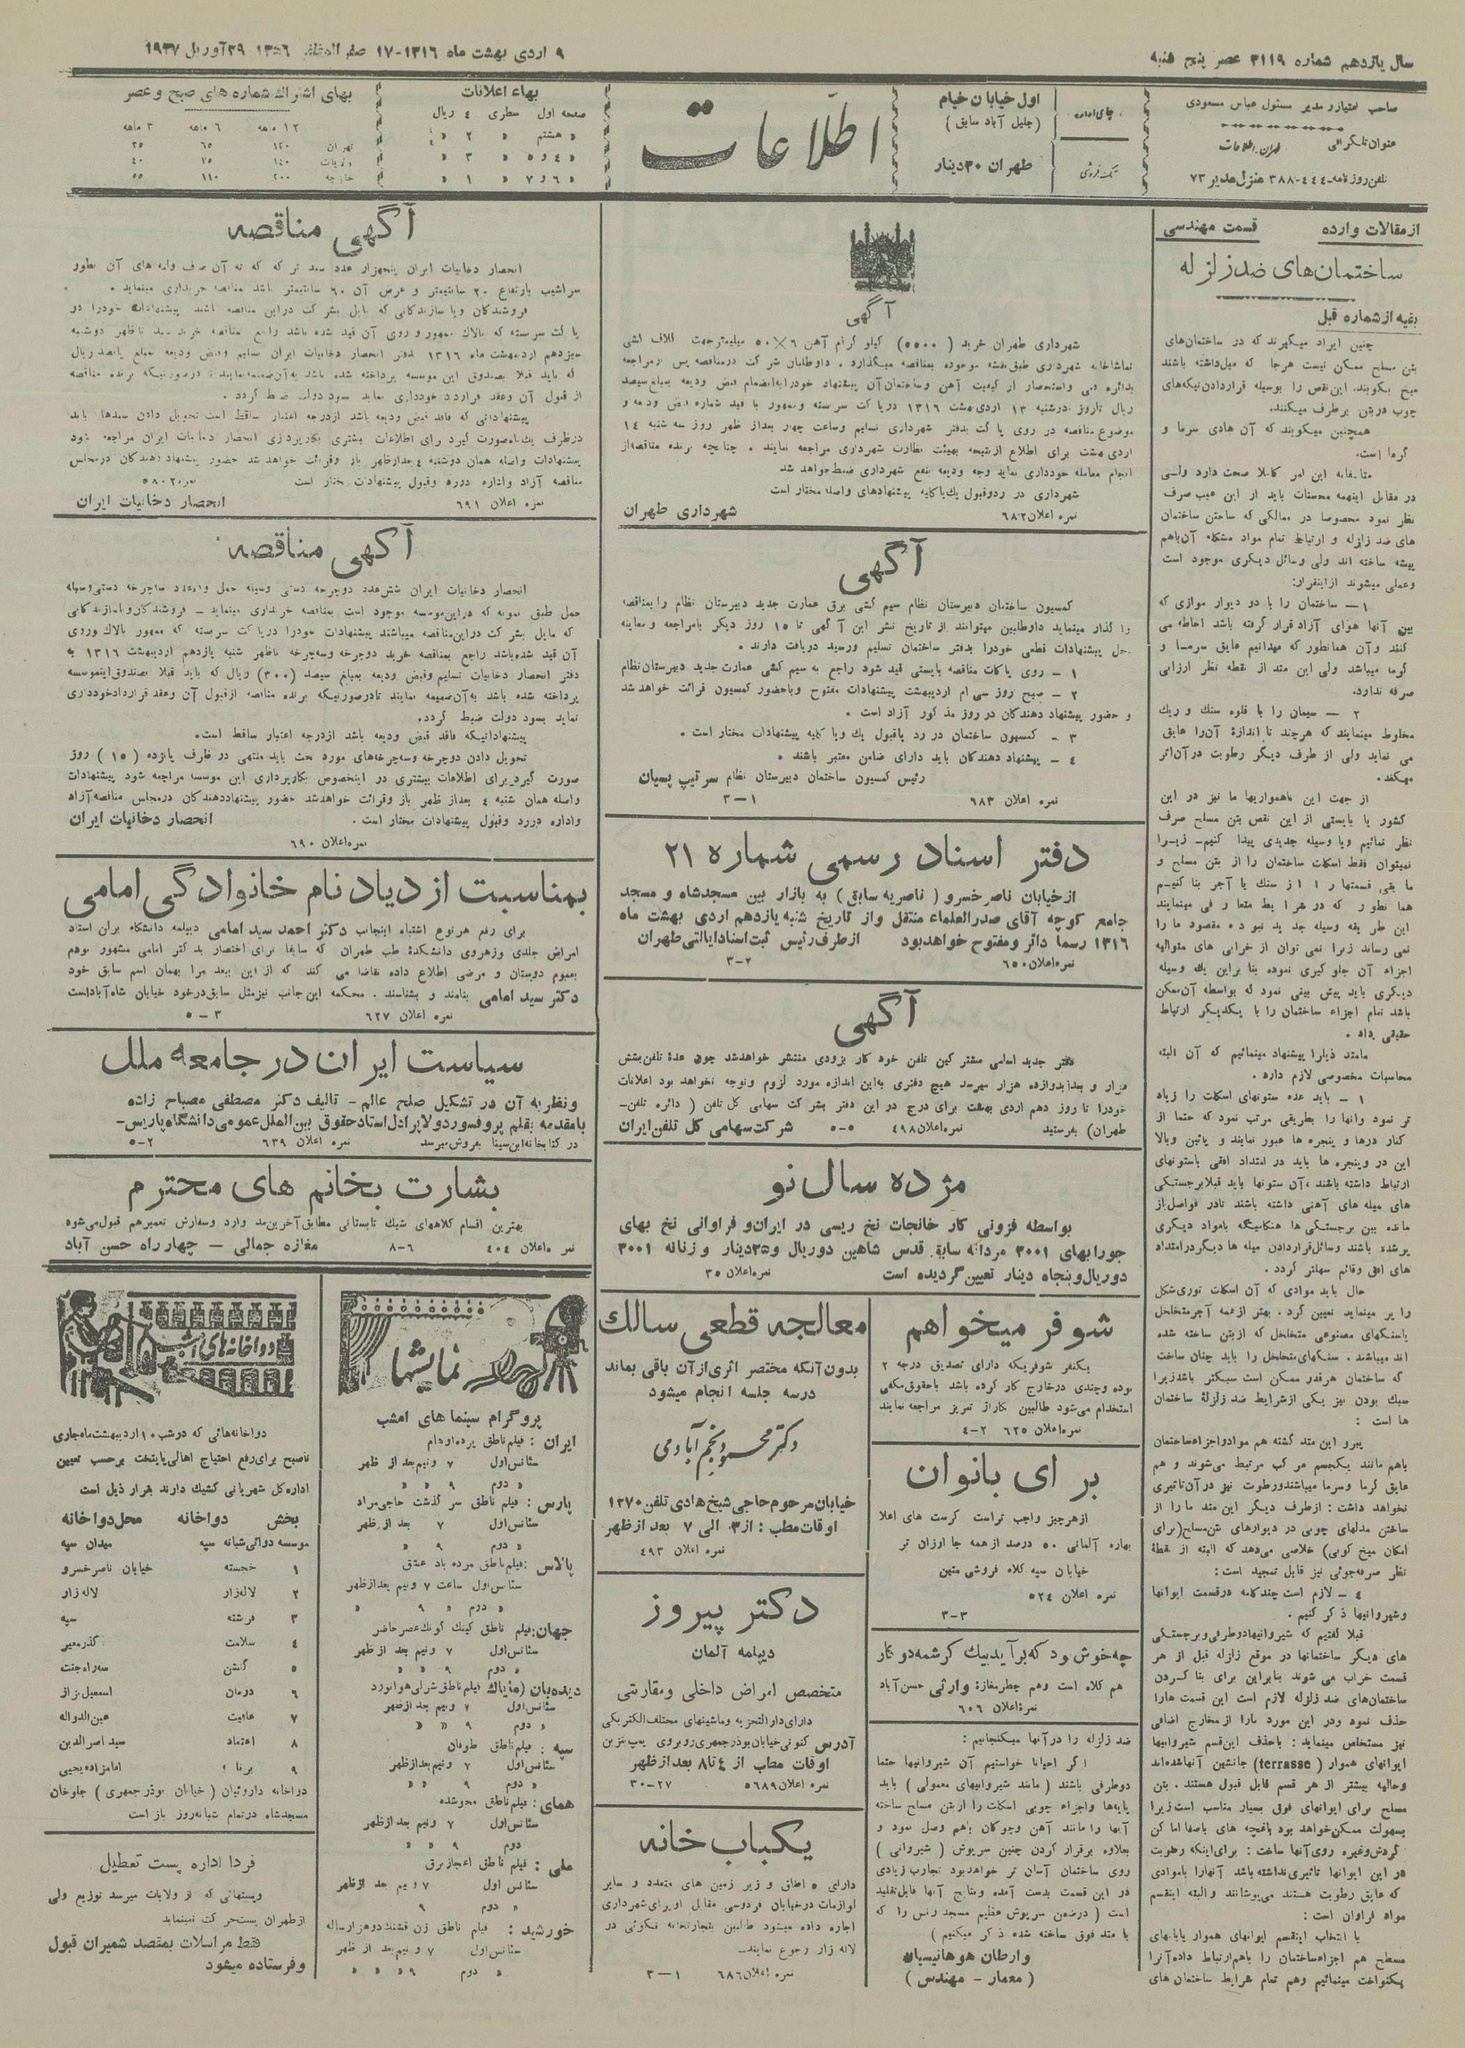 سال یازدهم شماره ۳۱۱۹ عصر پنج شنبه
۹ اردی بهشت ماه ۱۳۱۶-۱۷ صفر المظفر ۱۳۵۶ ۲۹ آوریل ۱۹۳۷
صاحب امتیاز و مدیر مسئول عباس مسعودی
عنوان تلگرافی طهران اطلاعات
تلفن روزنامه ۴۴۴-۳۸۸ منزل مدیر ۷۳
جای اداره
اول خیابان خیام
(جلیل آباد سابق)
تک فروشی
طهران ۳۰ دینار
اطلاعات
بهاء اعلانات
صفحه اول سطری ۴ ریال
« هشتم « ۲ «
« ۴ و ۵ « ۳ «
« ۶ و ۷ « ۱ «
بهای اشتراک شماره های صبح و عصر
۱۲ ماهه ۶ ماهه ۳ ماهه
طهران ۱۲۰ ۶۵ ۳۵
ولایات ۱۴۰ ۷۵ ۴۰
خارجه ۲۰۰ ۱۱۰ ۵۵
از مقالات وارده
قسمت مهندسی
ساختمان‌های ضد زلزله
بقیه از شماره قبل
چنین ایراد میگیرند که در ساختمان‌های
بتن مسلح ممکن نیست هرجا که میل داشته باشند
میخ بکوبند. این نقص را بوسیله قراردادن تیکه‌های
چوب در بتن برطرف میکنند.
همچنین میگویند که آن هادی سرما و
گرما است.
متاسفانه این امر کاملا صحت دارد ولی
در مقابل اینهمه محسنات باید از این عیب صرف
نظر نمود مخصوصا در ممالکی که ساختن ساختمان
های ضد زلزله و ارتباط تمام مواد متشکله آن باهم
پیشه ساخته اند ولی وسائل دیگری موجود است
و عملی میشوند از اینقرار:
۱ — ساختمان را با دو دیوار موازی که
بین آنها هوای آزاد قرار گرفته باشد احاطه می
کنند و آن همانطور که میدانیم عایق سرما و
گرما میباشد ولی این متد از نقطه نظر ارزانی
صرفه ندارد.
۲ — سیمان را با قلوه سنگ و ریگ
مخلوط مینمایند که هرچند تا اندازهٔ آنرا عایق
می نماید ولی از طرف دیگر رطوبت در آن اثر
میکند.
از جهت این ناهمواریها ما نیز در این
کشور یا بایستی از این نقص بتن مسلح صرف
نظر نمائیم و یا وسیله جدیدی پیدا کنیم- زیرا
نمیتوان فقط اسکلت ساختمان را از بتن مسلح و
ما بقی قسمتها را از سنگ یا آجر بنا کنیم
همانطور که در شرایط متعارفی مینمایند
این طریقه وسیله جدید نبوده مقصود ما را
نمی رساند زیرا نمی توان از خرابی های متوالیه
اجزاء آن جلوگیری نموده بنابراین یک وسیله
دیگری باید پیش بینی نمود که بواسطه آن ممکن
باشد تمام اجزاء ساختمان را با یکدیگر ارتباط
حقیقی داد.
ما متد ذیلرا پیشنهاد مینمائیم که آن البته
محاسبات مخصوصی لازم دارد.
۱ — باید عده ستونهای اسکلت را زیاد
تر نمود و آنها را بطریقی مرتب نمود که حتما از
کنار درها و پنجره ها عبور نمایند و پائین و بالا
این در و پنجره ها باید در امتداد افقی با ستونهای
ارتباط داشته باشند، آن ستونها باید قبلا برجستگی
های میله های آهنی داشته باشند تا در فواصل باز
مانده بین برجستگی ها هنگامیکه با مواد دیگری
پر شده باشند وسائل قراردادن میله ها دیگر در امتداد
های افقی و قائم سهلتر گردد.
حال باید موادی که آن اسکلت توری شکل
را پر مینماید تعیین کرد. بهتر از همه آجر متخلخل
یا سنگهای مصنوعی متخلخل که از بتن ساخته شده
اند میباشند. سنگهای متخلخل را باید چنان ساخت
که ساختمان هرقدر ممکن است سبکتر باشد زیرا
سبک بودن نیز یکی از شرایط ضد زلزلهٔ ساختمان
ها است:
پیرو این متد گذشته هم مواد و اجزاء ساختمان
باهم مانند یکجسم مرکب مرتبط می‌شوند و هم
عایق گرما و سرما میباشند و رطوبت نیز در آن تاثیری
نخواهد داشت: از طرف دیگر این متد ما را از
ساختن مدلهای چوبی در دیوارهای بتن مسلح (برای
امکان میخ کوبی) خلاصی می‌دهد که البته از نقطهٔ
نظر صرفه‌جوئی نیز قابل تمجید است:
۴ — لازم است چند کلمه در قسمت ایوانها
و شیروانیها ذکر کنیم.
قبلا گفتیم که شیروانیها دو طرفی و برجستگی
های دیگر ساختمانها در موقع زلزله قبل از هر
قسمت خراب می شوند بنابراین برای بنا کردن
ساختمان‌های ضد زلزله لازم است این قسمت ها را
حذف نمود و در این مورد ما را از مخارج اضافی
نیز مستخلص مینماید: با حذف این قسم شیروانیها
ایوانهای هموار (terrasse) جانشین آنها شده‌اند
و حالیه بیشتر از هر قسم قابل قبول هستند. بتن
مسلح برای ایوانهای فوق بسیار مناسب است زیرا
بسهولت ممکن خواهد بود باغچه های باصفا اما کن
گردش و غیره روی آنها ساخت: برای اینکه رطوبت
در این ایوانها تاثیری نداشته باشد آنها را با موادی
که عایق رطوبت هستند می‌پوشانند و البته اینقسم
مواد فراوان است:
با انتخاب اینقسم ایوانهای هموار با پایه‌های
مسطح هم اجزاء ساختمان را باهم ارتباط داده آنرا
یکنواخت مینمائیم و هم تمام شرایط ساختمان های
آگهی
شهرداری طهران خرید (۵۵۰۰) کیلو گرام آهن ۶×۵۰ میلیمتر جهت کلاف کشی
تماشاخانه شهرداری طبق نقشه موجوده بمناقصه میگذارد. داوطلبان شرکت در مناقصه پس از مراجعه
بدائره فنی و استحضار از کیفیت آهن و ساختمان آن پیشنهاد خود را به انضمام قبض ودیعه بمبلغ سیصد
ریال تا روز دوشنبه ۱۳ اردی بهشت ۱۳۱۶ در پاکت سربسته و ممهور با قید شماره قبض ودیعه و
موضوع مناقصه در روی پاکت بدفتر شهرداری تسلیم و ساعت چهار بعد از ظهر روز سه شنبه ۱۴
اردی بهشت برای اطلاع از نتیجه بهیئت نظارت شهرداری مراجعه نمایند. چنانچه برنده مناقصه از
انجام معامله خودداری نماید وجه ودیعه بنفع شهرداری ضبط خواهد شد
شهرداری در رد و قبول یک یا کلیه پیشنهادهای واصله مختار است
نمره اعلان ۶۸۲ شهرداری طهران
آگهی
کمسیون ساختمان دبیرستان نظام سیم کشی برق عمارت جدید دبیرستان نظام را بمناقصه
واگذار مینماید داوطلبین میتوانند از تاریخ نشر این آگهی تا ۱۵ روز دیگر با مراجعه و معاینه
محل پیشنهادات قطعی خود را بدفتر ساختمان تسلیم و رسید دریافت دارند.
۱ - روی پاکات مناقصه بایستی قید شود راجع به سیم کشی عمارت جدید دبیرستان نظام
۲ - صبح روز سی ام اردیبهشت پیشنهادات مفتوح و با حضور کمسیون قرائت خواهد شد
و حضور پیشنهاد دهندگان در روز مذکور آزاد است.
۳ - کمسیون ساختمان در رد یا قبول یک و یا کلیه پیشنهادات مختار است.
۴ - پیشنهاد دهندگان باید دارای ضامن معتبر باشند.
رئیس کمسیون ساختمان دبیرستان نظام سرتیپ پسیان
نمره اعلان ۶۸۳ ۱-۳
دفتر اسناد رسمی شماره ۲۱
از خیابان ناصر خسرو (ناصریه سابق) به بازار بین مسجدشاه و مسجد
جامع کوچه آقای صدرالعلماء منتقل و از تاریخ شنبه یازدهم اردی بهشت ماه
۱۳۱۶ رسما دائر و مفتوح خواهد بود از طرف رئیس ثبت اسناد ایالتی طهران
نمره اعلان ۶۵۰ ۲-۳
آگهی
دفتر جدید اسامی مشترکین تلفن خودکار بزودی منتشر خواهد شد چون عدهٔ تلفن بشش
هزار و بعدا بدوازده هزار میرسد هیچ دفتری به این اندازه مورد لزوم و توجه نخواهد بود اعلانات
خود را تا روز دهم اردی بهشت برای درج در این دفتر بشرکت سهامی کل تلفن (دائره تلفن-
طهران) بفرستید نمره اعلان ۴۹۸ ۵-۵ شرکت سهامی کل تلفن ایران
مژده سال نو
بواسطه فزونی کارخانجات نخ ریسی در ایران و فراوانی نخ بهای
جورابهای ۳۰۰۱ مردانه سابق قدس شاهین دوریال و ۳۵ دینار و زنانه ۳۰۰۱
دوریال و پنجاه دینار تعیین گردیده است نمره اعلان ۳۵
شوفر میخواهم
یکنفر شوفریکه دارای تصدیق درجه ۲
بوده و چندی در خارج کار کرده باشد با حقوق مکفی
استخدام می‌شود طالبین بکاراژ تبریز مراجعه نمایند
نمره اعلان ۶۲۵ ۲-۴
برای بانوان
از هر چیز واجب تر است کرست های اعلا
بهاره آلمانی ۵۰ درصد از همه جا ارزان تر
خیابان سپه کلاه فروشی میهن
نمره اعلان ۵۲۴
۳-۳
چه خوش بود که برآید بیک کرشمه دو کار
هم کلاه است وهم چطر مغازهٔ وارثی حسن آباد
نمره اعلان ۶۰۶
ضد زلزله را در آنها میگنجانیم:
اگر احیانا خواستیم آن شیروانیها حتما
دو طرفی باشند (مانند شیروانیهای معمولی) باید
پایه‌ها و اجزاء چوبی اسکلت را از بتن مسلح ساخته
آنها را مانند آهن و چوکان باهم وصل نمود و
بعلاوه برقرار کردن چنین سرپوش (شیروانی)
روی ساختمان آسان تر خواهد بود تجارب زیادی
در این قسمت بدست آمده و نتایج آنها قابل تقلید
است (در ضمن سرپوش عظیم مسجد رنس را که
با متد فوق ساخته شده ذکر میکنیم)
وارطان هوهانیسیان
(معمار - مهندس)
معالجه قطعی سالک
بدون آنکه مختصر اثری از آن باقی بماند
در سه جلسه انجام میشود
دکتر محمود نجم آبادی
خیابان مرحوم حاجی شیخ هادی تلفن ۱۳۷۰
اوقات مطب: از ۳ الی ۷ بعد از ظهر
نمره اعلان ۴۹۳
دکتر پیروز
دیپلمه آلمان
متخصص امراض داخلی و مقاربتی
دارای دارالتجزیه و ماشینهای مختلف الکتریکی
آدرس کنونی خیابان بوذر جمهری روبروی پمپ بنزین
اوقات مطب از ۴ تا ۸ بعد از ظهر
نمره اعلان ۵۶۸۹ ۲۷-۳۰
یکباب خانه
دارای ۵ اطاق و زیر زمین های متعدد و سایر
لوازمات در خیابان فردوسی مقابل اوپرای شهرداری
اجاره داده میشود طالبین بتجارتخانه نیکوئی در
لاله زار رجوع نمایند.
نمره اعلان ۶۸۶ ۱-۳
آگهی مناقصه
انحصار دخانیات ایران پنجهزار عدد سبد ترکه که ته آن صاف و لبه های آن بطور
سراشیب بارتفاع ۲۰ سانتیمتر و عرض آن ۶۰ سانتیمتر باشد بمناقصه خریداری مینماید.
فروشندگان و یا سازندگانی که مایل بشرکت در این مناقصه باشند پیشنهادات خود را در
پاکت سربسته که بالاک ممهور و روی آن قید شده باشد راجع بمناقصه خرید سبد تا ظهر دوشنبه
سیزدهم اردیبهشت ماه ۱۳۱۶ بدفتر انحصار دخانیات ایران تسلیم و قبض ودیعه بمبلغ پانصد ریال
که باید قبلا بصندوق این موسسه پرداخته شده باشد به آن ضمیمه نمایند تا در صورتیکه برنده مناقصه
از قبول آن و عقد قرارداد خودداری نماید بسود دولت ضبط گردد.
پیشنهاداتی که فاقد قبض ودیعه باشد از درجه اعتبار ساقط است تحویل دادن سبدها باید
در ظرف یکماه صورت گیرد برای اطلاعات بیشتری بکارپردازی انحصار دخانیات ایران مراجعه شود
پیشنهادات واصله همان دوشنبه ۴ بعد از ظهر باز و قرائت خواهد شد حضور پیشنهاد دهندگان در مجلس
مناقصه آزاد و اداره در رد و قبول پیشنهادات مختار است نمره ۵۸۰۲
نمره اعلان ۶۹۱ انحصار دخانیات ایران
آگهی مناقصه
انحصار دخانیات ایران شش عدد دوچرخه دستی وسیله حمل و عدد سه چرخه دستی وسیله
حمل طبق نمونه که در این موسسه موجود است بمناقصه خریداری مینماید - فروشندگان و یا سازندگانی
که مایل بشرکت در این مناقصه میباشند پیشنهادات خود را در پاکت سربسته که ممهور بالاک و روی
آن قید شده باشد راجع بمناقصه خرید دوچرخه و سه چرخه تا ظهر شنبه یازدهم اردیبهشت ۱۳۱۶ به
دفتر انحصار دخانیات تسلیم و قبض ودیعه بمبلغ سیصد (۳۰۰) ریال که باید قبلا بصندوق این موسسه
پرداخته شده باشد به آن ضمیمه نمایند تا در صورتیکه برنده مناقصه از قبول آن و عقد قرارداد خودداری
نماید بسود دولت ضبط گردد.
پیشنهاداتیکه فاقد قبض ودیعه باشد از درجه اعتبار ساقط است.
تحویل دادن دوچرخه و سه چرخه‌های مورد بحث باید منتهی در ظرف پانزده (۱۵) روز
صورت گیرد برای اطلاعات بیشتری در اینخصوص بکارپردازی این موسسه مراجعه شود پیشنهادات
واصله همان شنبه ۴ بعد از ظهر باز و قرائت خواهد شد حضور پیشنهاد دهندگان در مجلس مناقصه آزاد
و اداره در رد و قبول پیشنهادات مختار است. انحصار دخانیات ایران
نمره اعلان ۶۹۰
بمناسبت ازدیاد نام خانوادگی امامی
برای رفع هر نوع اشتباه اینجانب دکتر احمد سید امامی دیپلمه دانشگاه پران استاد
امراض جلدی و زهروی دانشکدهٔ طب طهران که سابقا برای اختصار بدکتر امامی مشهور بودم
بعموم دوستان و مرضی اطلاع داده تقاضا می کند که از این ببعد مرا بهمان اسم سابق خود
دکتر سید امامی بنامند و بشناسند. محکمه این جانب نیز مثل سابق در خود خیابان شاه آباد است
نمره اعلان ۶۲۷ ۳-۵
سیاست ایران در جامعه ملل
و نظر به آن در تشکیل صلح عالم - تالیف دکتر مصطفی مصباح زاده
با مقدمه بقلم پروفسور دولاپرادل استاد حقوق بین الملل عمومی دانشگاه پاریس-
در کتابخانه ابن سینا بفروش میرسد نمره اعلان ۶۳۹ ۲-۵
بشارت بخانم های محترم
بهترین اقسام کلاههای شیک تابستانی مطابق آخرین مد وارد و سفارش تعمیر هم قبول می‌شود
نمره اعلان ۴۰۴ ۶-۸ مغازه جمالی — چهار راه حسن آباد
نمایشها
پروگرام سینماهای امشب
ایران: فیلم ناطق
سئانس اول ۷ و نیم بعد از ظهر
« دوم ۹ «
پارس: فیلم ناطق سرگذشت حاجی مراد
سئانس اول ۷ بعد از ظهر
« دوم ۹ «
پالاس: فیلم ناطق مرده باد عشق
سئانس اول ساعت ۷ و نیم بعد از ظهر
« دوم « ۹ «
جهان: فیلم ناطق کینگ کونگ عصر حاضر
سئانس اول ۷ و نیم بعد از ظهر
« دوم ۹ « «
دیده‌بان (مایاک) فیلم ناطق شرلی هوانورد
سئانس اول ۷ و نیم بعد از ظهر
« دوم ۹ « «
سپه: فیلم ناطق طوفان
سئانس اول ۷ و نیم بعد از ظهر
« دوم ۹ « «
همای: فیلم ناطق محو شده
سئانس اول ۷ و نیم بعد از ظهر
دوم ۹ « «
ملی: فیلم ناطق اعجاز برق
سئانس اول ۷ و نیم بعد از ظهر
« دوم ۹
خورشید: فیلم ناطق زن قشنگ دو هزار ساله
سئانس اول ۷ و نیم بعد از ظهر
« دوم ۹ « «
دواخانه‌های امشب
دواخانه‌هائی که در شب ۱۰ اردیبهشت ماه جاری
تا صبح برای رفع احتیاج اهالی پایتخت برحسب تعیین
اداره کل شهربانی کشیک دارند بقرار ذیل است
بخش دواخانه محل دواخانه
موسسه دوائی شبانه سپه میدان سپه
۱ خجسته خیابان ناصر خسرو
۲ لاله‌زار لاله زار
۳ فرشته سپه
۴ سلامت گذر معیر
۵ گلشن سه راه جنت
۶ درمان اسمعیل بزاز
۷ عافیت عین الدوله
۸ اعتماد سید نصرالدین
۹ برنا امامزاده یحیی
دواخانه داروئیان (خیابان بوذر جمهری) جلوخان
مسجدشاه در تمام شبانه‌روز باز است
فردا اداره پست تعطیل
و پستهائی که از ولایات میرسد توزیع ولی
از طهران پست حرکت نمینماید
فقط مراسلات بمقصد شمیران قبول
و فرستاده میشود